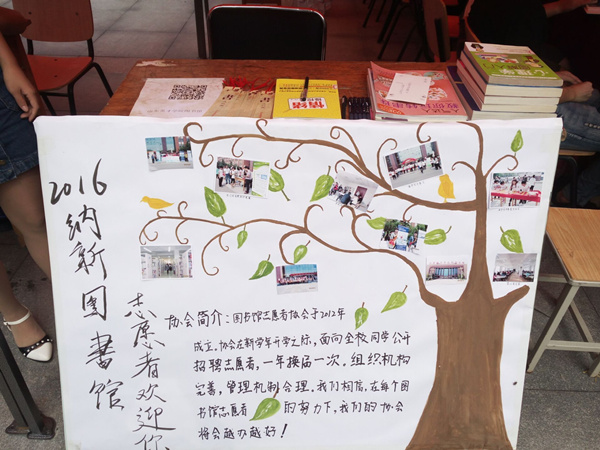 2016纳新图書馆
志愿者欢迎你
协会简介：图书馆志愿者协会于2012年
成立。协会在新学年开学之际，面向全校同学公开
招聘志愿者，一年换届一次。组织机构
完善，管理机制合理。我们相信，在每个图
书馆志愿者的努力下，我们的协会
将会越办越好！